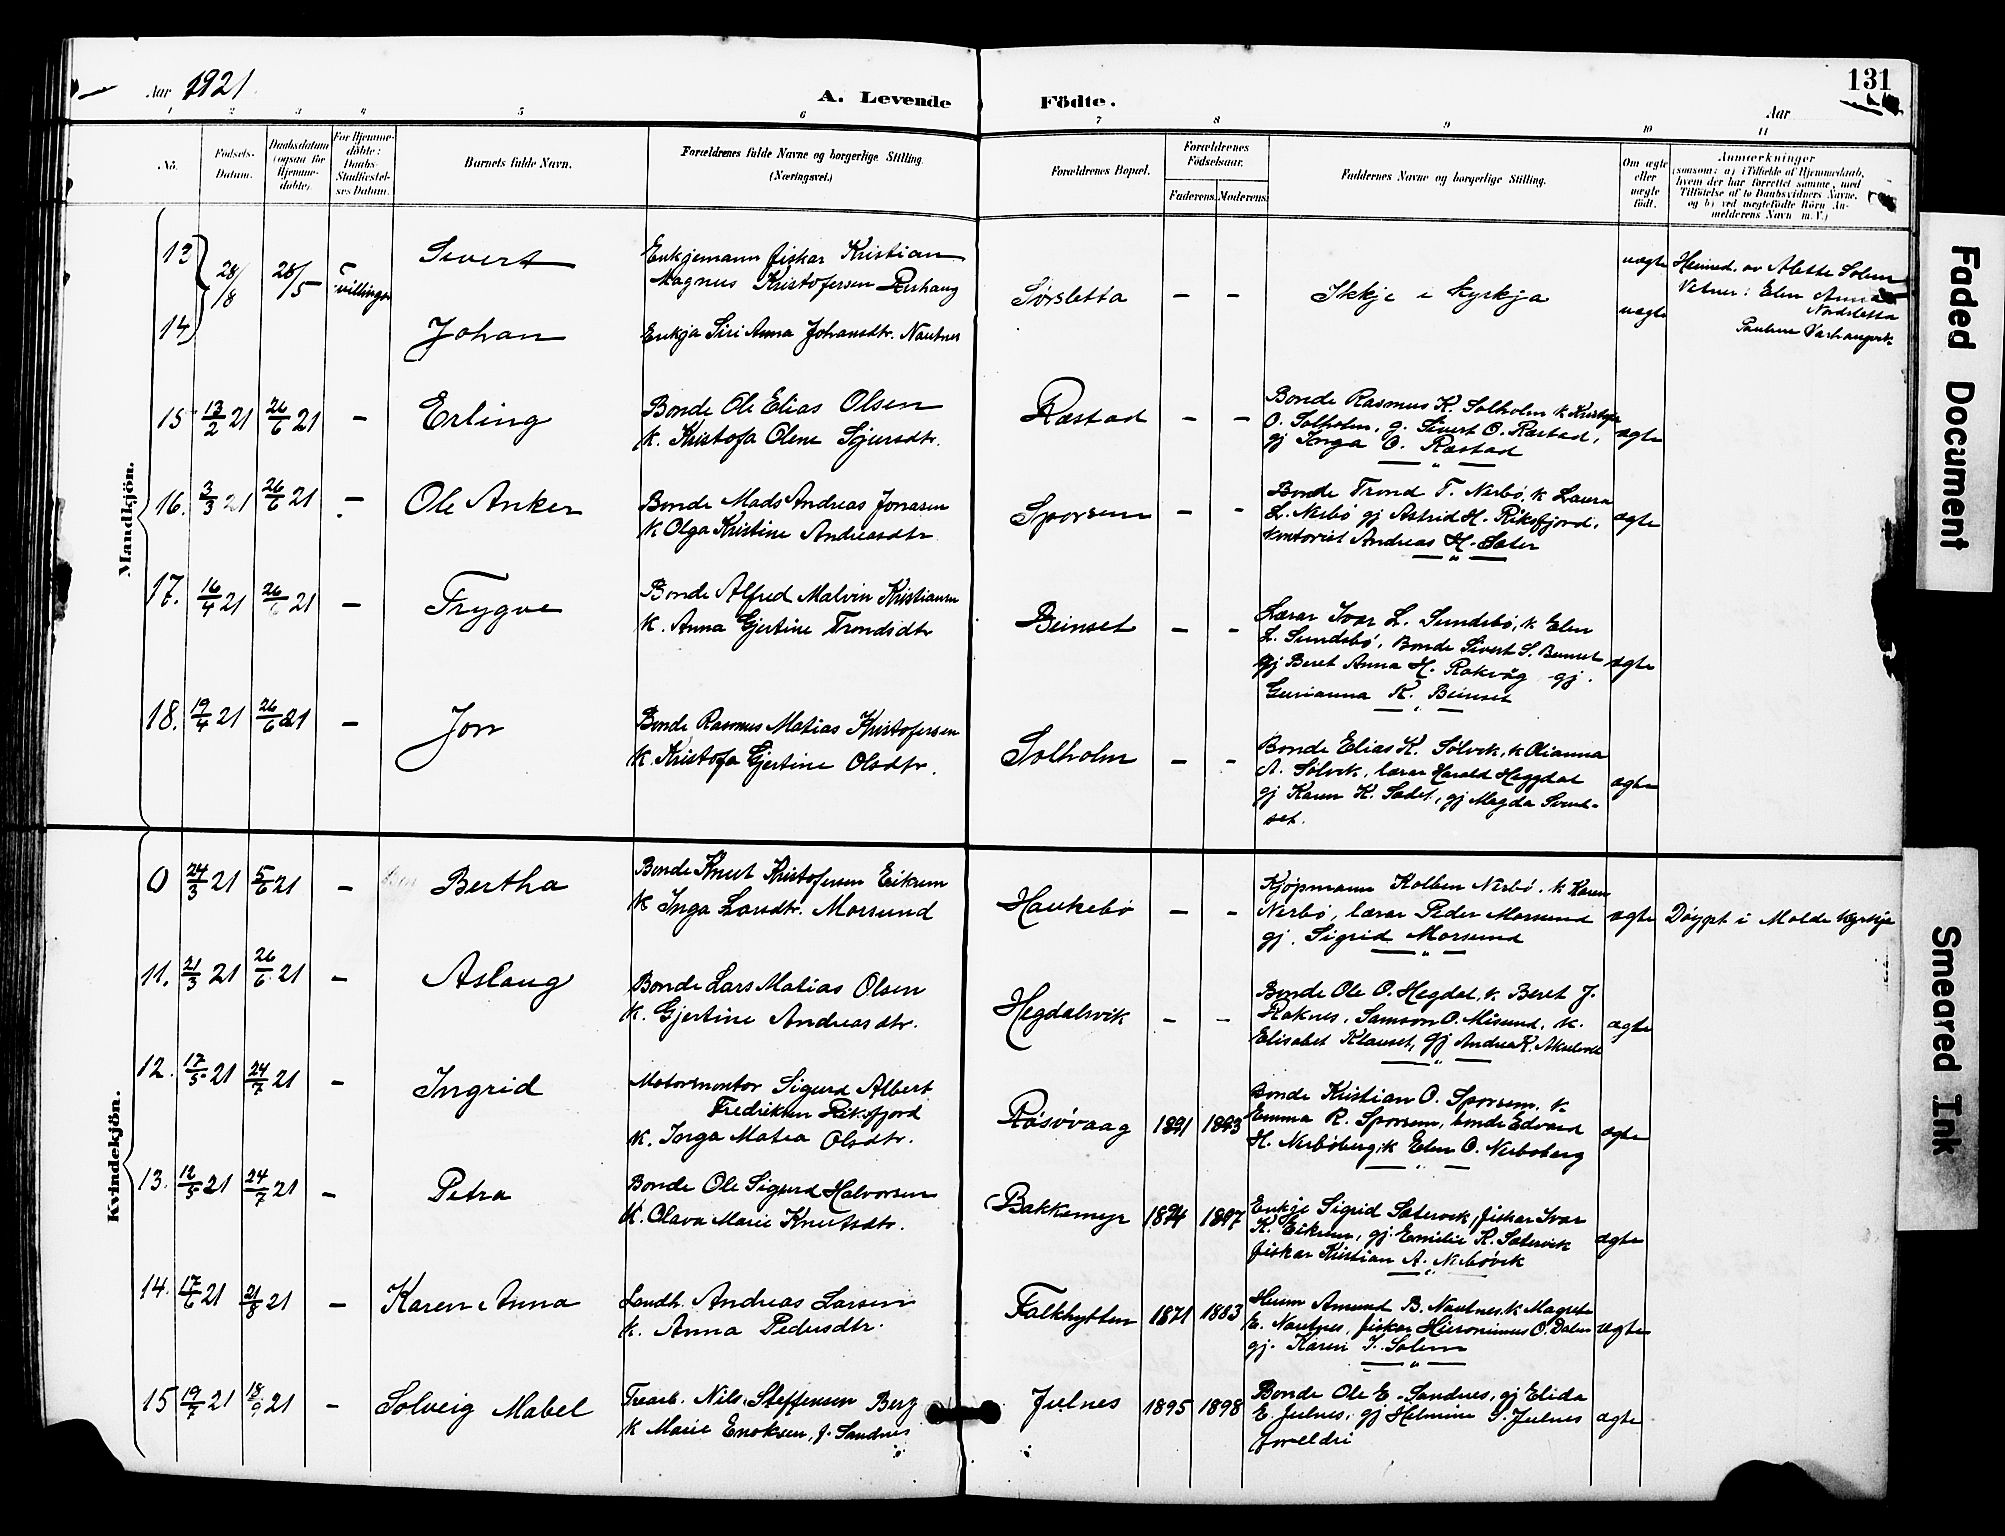 Aar 1921
A. Levende Födte.
Aar
131
1 2 3 4 5 6 7 8 9 10 11
No.
Fødsels-
Datum.
Daabsdatum
(ogsaa for
Hjemme-
døbte)
For Hjemme-
døbte:
Daabs-
Stadfæstel-
ses Datum.
Barnets fulde Navn.
Forældrenes fulde Navne og borgerlige Stilling
(Næringsvei.)
Forældrenes Bopæl.
Forældrenes
Fødselsaar.
Faderens. Moderens.
Faddernes Navne og borgerlige Stilling.
Om ægte
eller
uægte
født.
Anmærkninger
(saasom: a) i Tilfælde af Hjemmedaab,
hvem der har forrettet samme, med
Tilføielse af to Daabsvidners Navne.
og b) ved uægtefødte Børn An-
melderens Navn m. V.)
Mandkjön.
13
14
28/8
28/5
Tvillingar
Sivert
Johan
Enkjemann fiskar Kristian
Magnus Kristofersen
Enkja Siri Anna Johansdtr. Nautnes
Sørsletta
- -
Ikkje i kyrkja
uægte
uægte
Heimed. av Alette Solem
Vitner: Elen Anna
Nordsletta
Pauline
15 13/2 21 26/6 21 -
Erling
Bonde Ole Elias Olsen
k. Kristofa Olene Sjursdtr.
Rastad - -
Bonde Rasmus K. Solholm k Kristofa
O. Solholm, g. Sivert O. Rastad,
gj Inga O. Rastad
ægte
16. 3/3 21 26/6 21 -
Ole Anker
Bonde Mads Andreas Jonasen
k Olga Kristine Andreasdtr
Sporsem - -
Bonde Trond T. Nerbø, k Laura
L. Nerbø gj Astrid H. Riksfjord,
kontorist Andreas H. Sæter
ægte
17. 16/4 21 26/6 21 -
Trygve
Bonde Alfred Malvin Kristiansen
k. Anna Gjertine Trondsdtr
Beinset - -
Lærar Ivar L. Sundsbø, k. Elen
L. Sundsbø, Bonde Sivert S. Beinset
gj Beret Anna H. Rakvåg gj.
Gurianna K. Beinset
ægte
18. 19/4 21 26/6 21 -
Jon
Bonde Rasmus Matias Kristofersen
k. Kristofa Gjertine Olsdtr.
Solholm - -
Bonde Elias K. Sølvik, k Olianna
A. Sølvik, lærar Harald Heggdal
gj Karen K. Sadet, gj Magda
set.
ægte
Kvindekjön.
0 24/3 21 5/6 21 -
Bertha
Bonde Knut Kristofersen Eikrem
k Inga Larsdtr. Morsund
Haukebø - -
Kjøpmann Kolben Nerbø. k Karen
Nerbø, lærar Peder Morsund
gj. Sigrid Morsund
ægte
Døypt i Molde kyrkje
11. 21/3 21 26/6 21 -
Aslaug
Bonde Lars Matias Olsen
k. Gjertine Andreasdtr.
Hegdalsvik - -
Bonde Ole O. Hegdal, k. Beret J.
Raknes, Samson O. Misund, k.
Elisabet Klauset, gj Andrea K.
ægte
12. 17/5 21 24/7 21 -
Ingrid
Motormontør Sigurd Albert
Fredriksen Riksfjord
k. Inga Matea Olsdtr.
Røsøvaag 1891 1893
Bonde Kristian O. Sporsem, k.
Emma R. Sporsem, bonde Edvard
H. Nerbøberg, k Elen O. Nerbøberg
ægte
13. 12/5 21 24/7 21 -
Petra
Bonde Ole Sigurd Halvorsen
k. Olava Marie Knutsdtr.
Bakkemyr 1894 1897
Enkje Sigrid Sætervik, fiskar Ivar
K. Eikrem, gj. Emilie K. Sætervik
fiskar Kristian A. Nerbøvik
ægte
14. 17/6 21 21/8 21 -
Karen Anna
Landh. Andreas Larsen
k. Anna Pedersdtr.
Falkhytten 1871 1883
Amund B. Nautnes, k Magrete
E. Nautnes, fiskar Hieronimus O. Dalen
gj. Karen I. Solem
ægte
15 19/7 21 18/9 21 -
Solveig Mabel
Trearb. Nils Steffensen Berg
k Marie Enoksen, f. Sandnes
Julnes 1895 1898
Bonde Ole E. Sandnes, gj Elida
E. Julnes, gj Helmine S. Julnes
foreldri
ægte
Faded Document
Smeared Ink